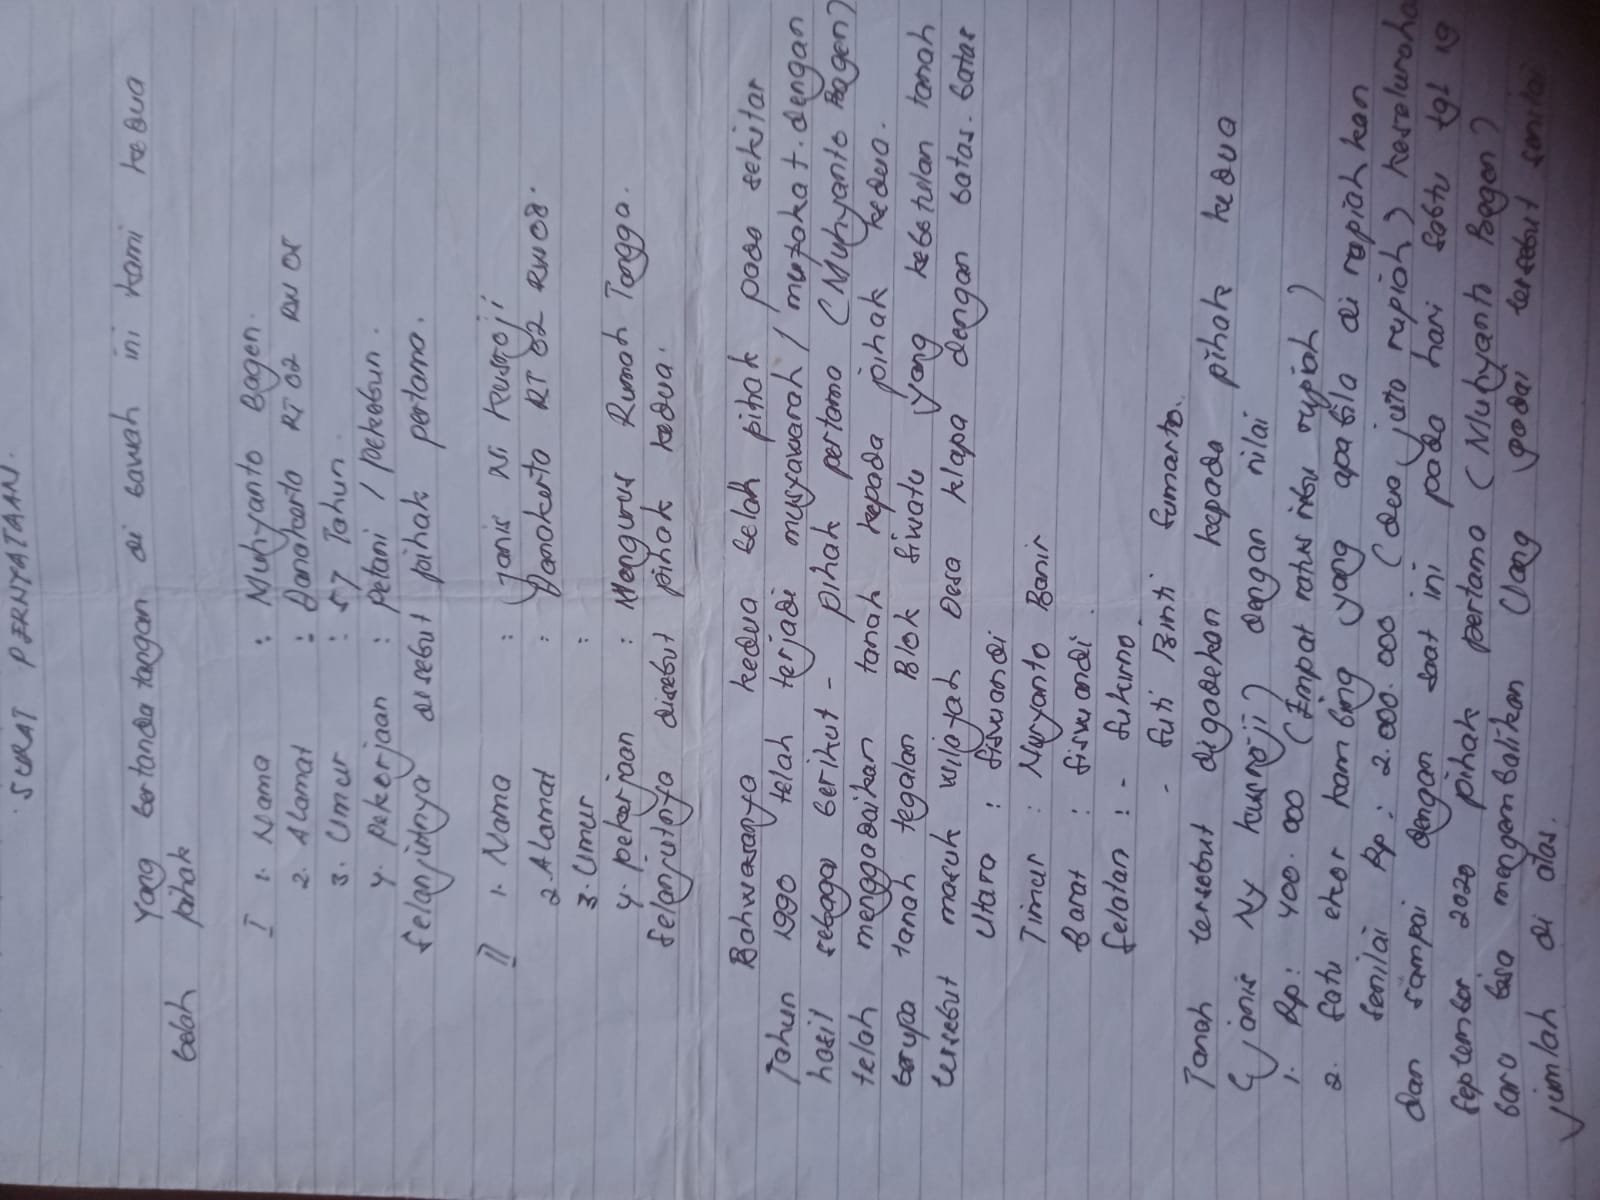 SURAT PERNYATAAN.
Yang bertanda tangan di bawah ini kami kedua
belah pihak
I 1. Nama : Muhyanto Bagen.
2. Alamat : Danakerta RT 02 RW
3. Umur : 57 Tahun.
4. pekerjaan : petani / pekebun.
Selanjutnya disebut pihak pertama.
II 1. Nama : Janis Ni Kusroji
2. Alamat : Danakerta RT 02 RW 08.
3. Umur :
4. pekerjaan : Mengurus Rumah Tangga.
Selanjutnya disebut pihak kedua.
Bahwasanya kedua belah pihak pada sekitar
Tahun 1990 telah terjadi musyawarah / mufakat dengan
hasil sebagai berikut - pihak pertama (Muhyanto Bagen)
telah menggadaikan tanah kepada pihak kedua.
berupa tanah tegalan Blok Siwatu yang kebetulan tanah
tersebut masuk wilayah Desa Klapa dengan batas-batas
Utara : Siswandi
Timur : Nuryanto Banir
Barat : Siswandi.
Selatan : - Sukirno
- Suti Binti Sumarto.
Tanah tersebut digadekan kepada pihak kedua
(Janis Ny Kusroji) dengan nilai
1. Rp: 400.000 (Empat ratus ribu rupiah)
2. Satu ekor kambing yang apabila di rupiahkan
senilai Rp: 2.000.000 (dua juta rupiah)
dan sampai dengan saat ini pada hari Sabtu tgl 19
September 2020 pihak pertama (Muhyanto Bagen)
baru bisa mengembalikan Uang gadai tersebut senilai
jumlah di atas.